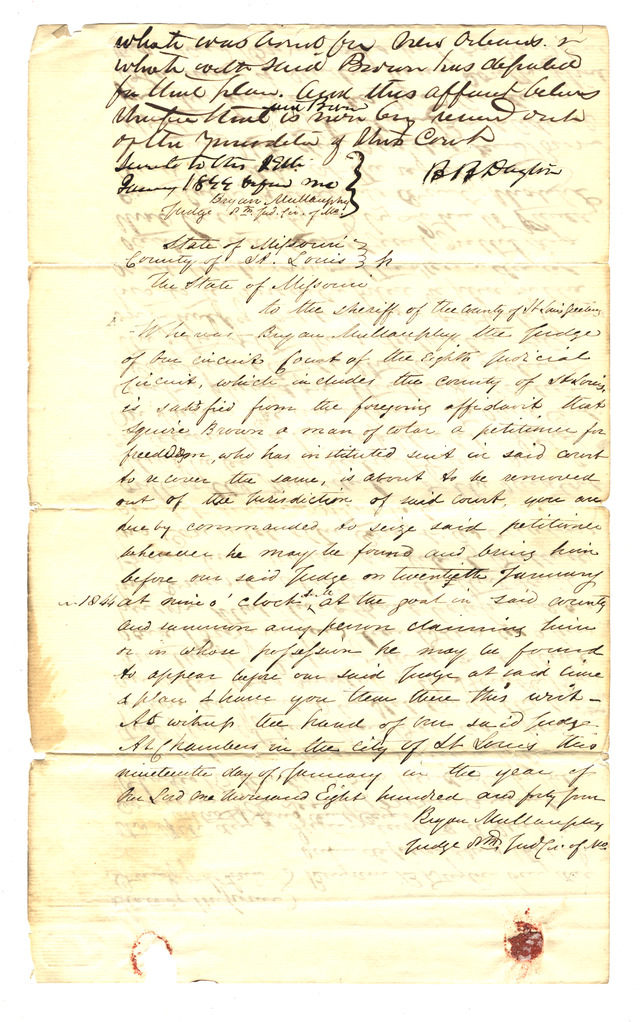 which was bound for New Orleans. &
which with said Brown has departed
for that place. And this affiant believes
therefore that said Brown is now being removed out
of the jurisdiction of this Court
Sworn to this 19th
January 1844 before me } B B Dayton
Bryan Mullanphy
Judge 8th Jud. Cir. of Mo.
State of Missouri
County of St. Louis } ss
The State of Missouri
to the sheriff of the County of St Louis Greeting
Whereas Bryan Mullanphy the Judge
of our circuit Court of the Eighth Judicial
Circuit, which includes the county of St Louis,
is satisfied from the foregoing affidavit that
Squire Brown a man of color a petitioner for
freedom, who has instituted suit in said court
to recover the same, is about to be removed
out of the Jurisdiction of said court, you are
hereby commanded to seize said petitioner
wherever he may be found and bring him
before our said Judge on twentyeth January
1844 at nine o'clock at the goal in said county
and summon any person claiming him
or in whose possession he may be found
to appear before our said Judge at said time
& place & have you then there this writ –
Witness the hand of our said Judge
At Chambers in the city of St Louis this
nineteenth day of January in the year of
Our Lord One thousand Eight hundred and forty four
Bryan Mullanphy
Judge 8th Jud Cir. of Mo